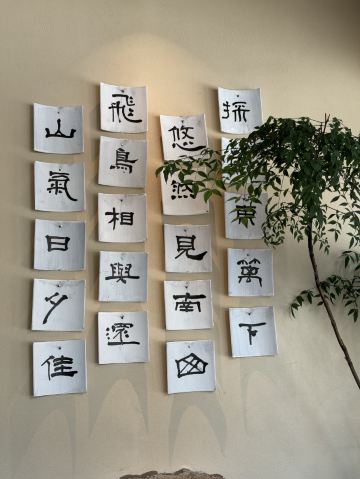 採東萬下
悠然見南山
飛鳥相與還
山氣日夕佳